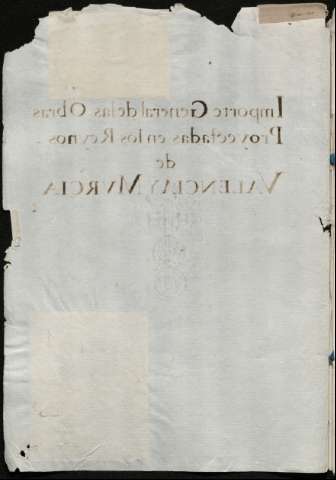 Importe General de las Obras
Proyectadas en los Reynos
de
VALENCIA, Y MVRCIA